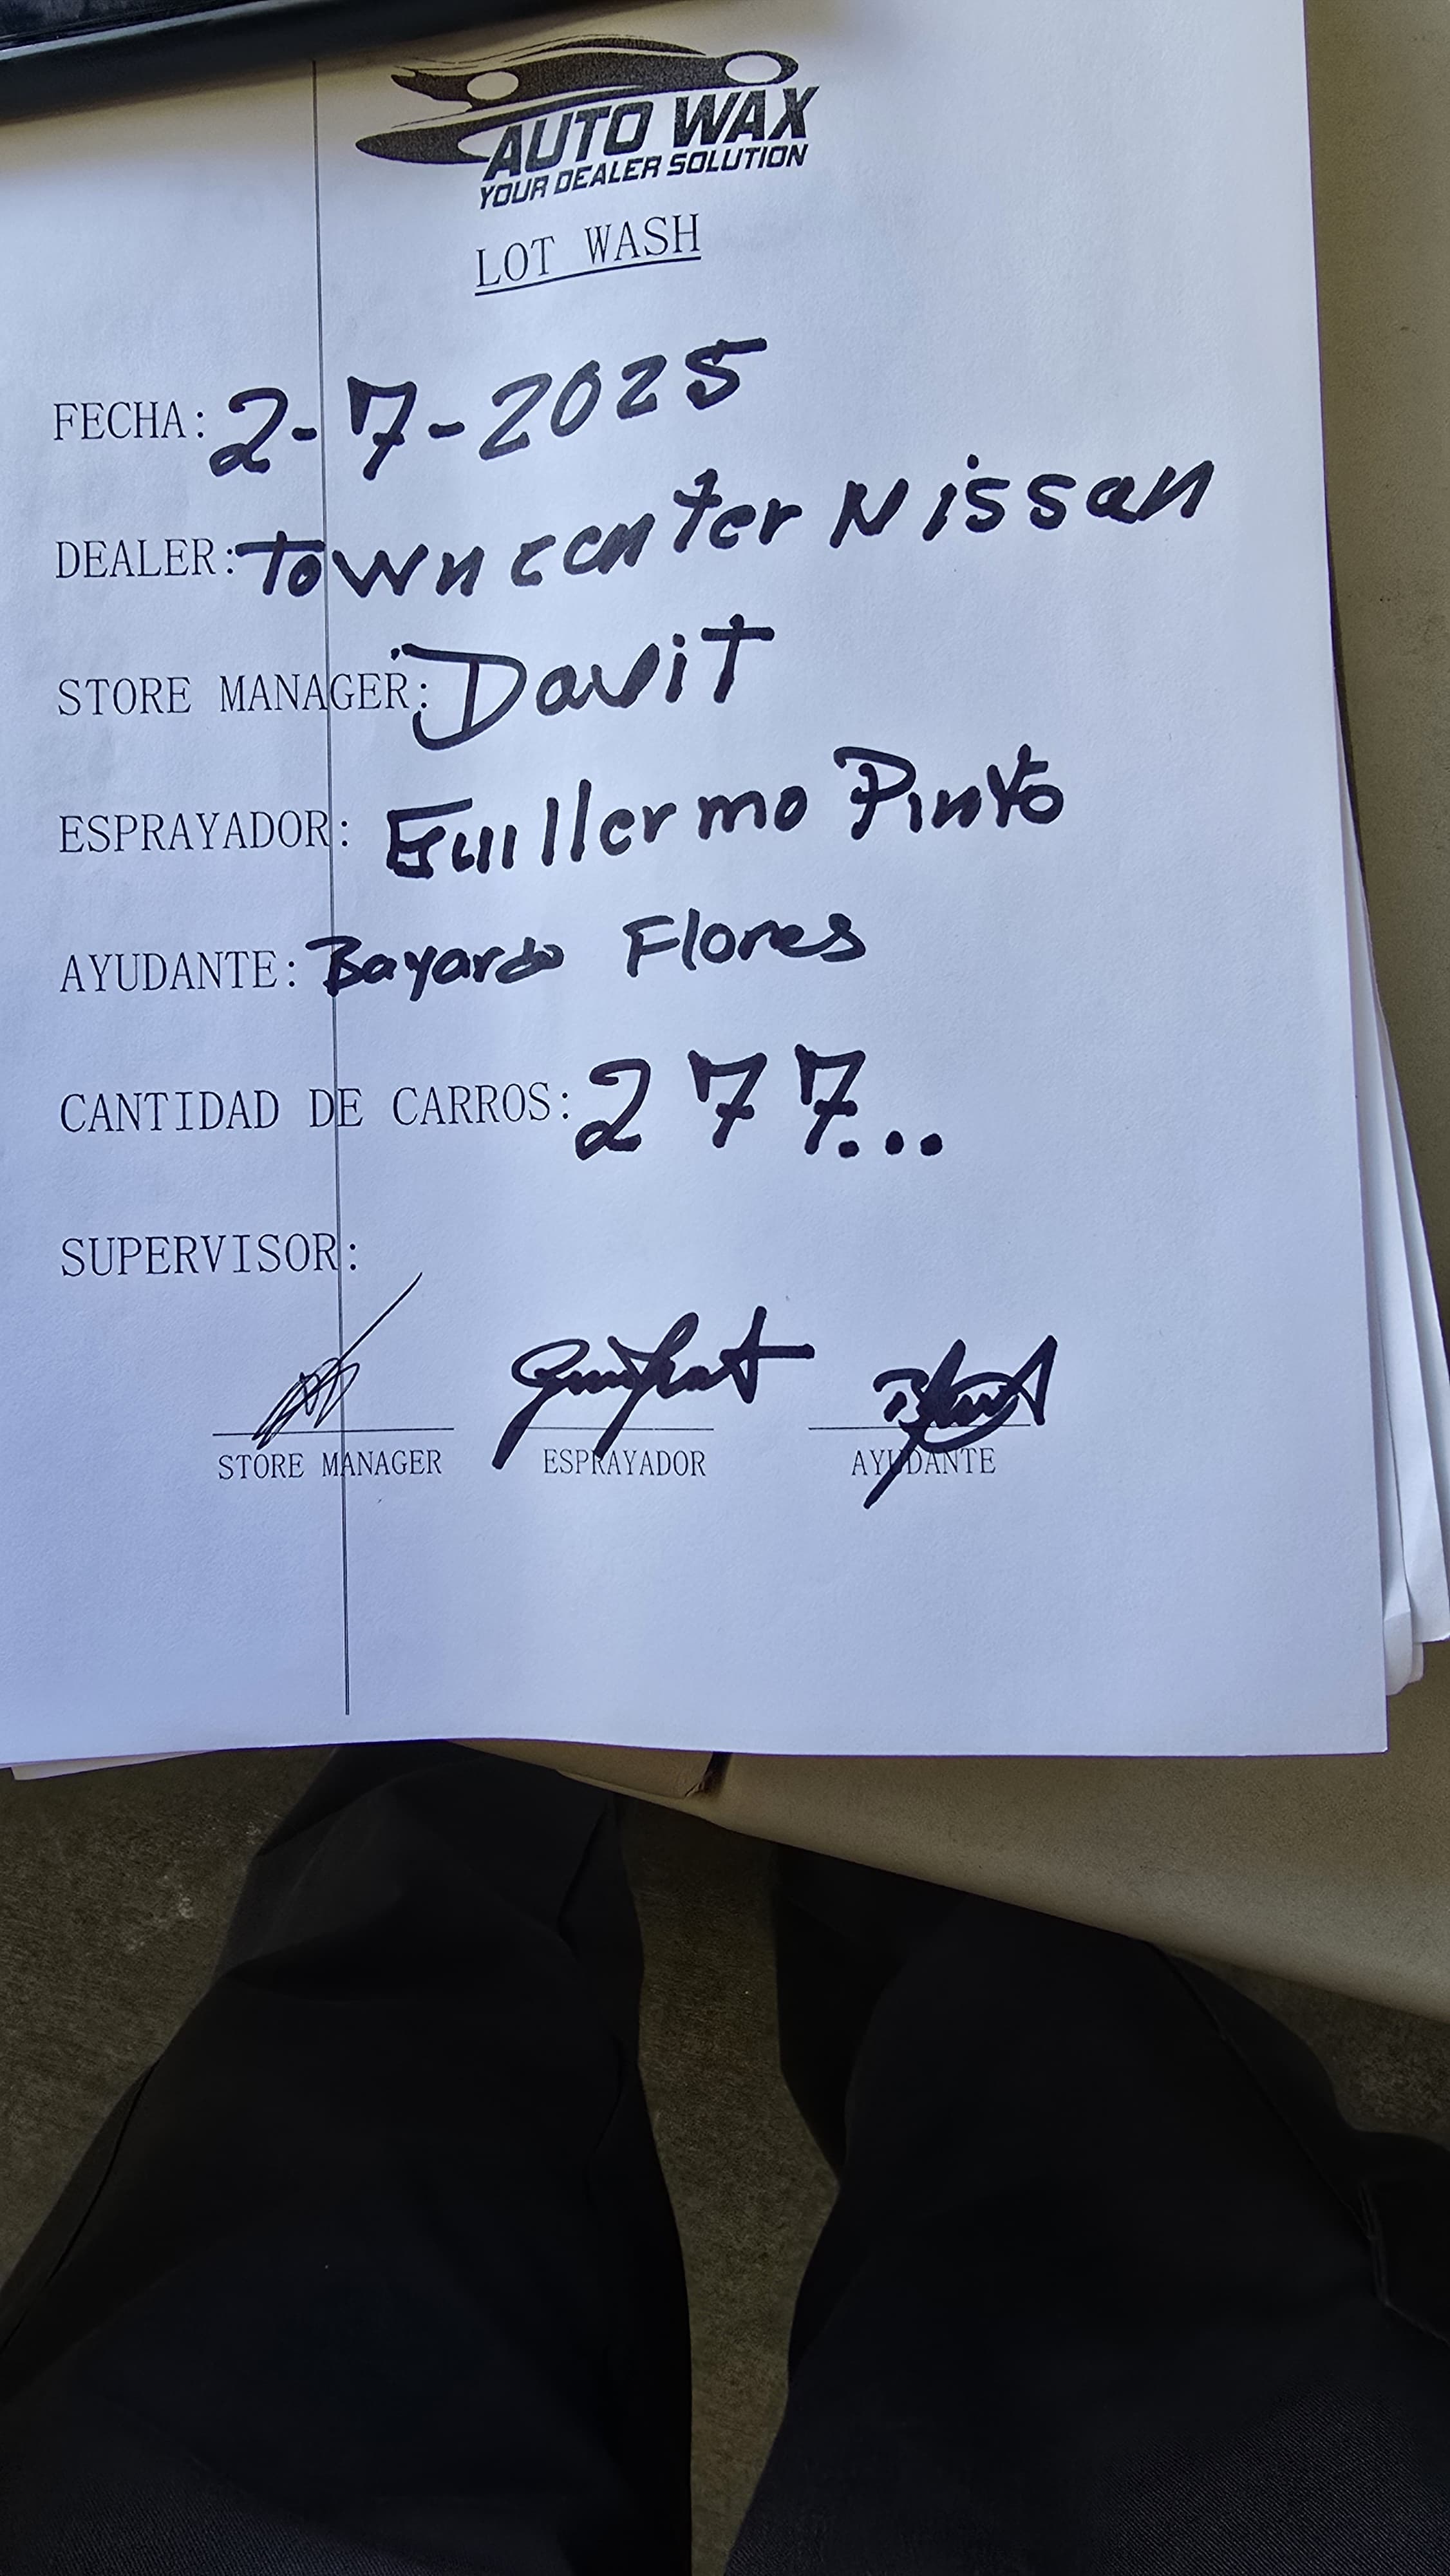 AUTO WAX
YOUR DEALER SOLUTION
LOT WASH
FECHA: 2-7-2025
DEALER: Town center Nissan
STORE MANAGER: DaviT
ESPRAYADOR: Guillermo Pinto
AYUDANTE: Bayardo Flores
CANTIDAD DE CARROS: 277...
SUPERVISOR:
STORE MANAGER ESPRAYADOR AYUDANTE